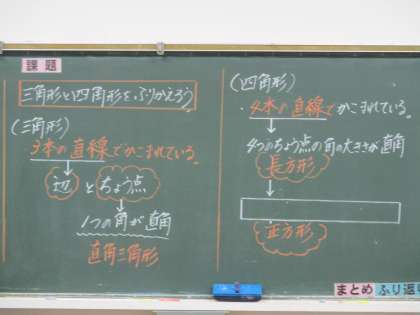 課題
三角形と四角形をふりかえろう
(三角形)
3本の直線でかこまれている。
辺とちょう点
1つの角が直角
直角三角形
(四角形)
4本の直線でかこまれている。
4つのちょう点の角の大きさが直角
長方形
正方形
まとめ
ふり返り